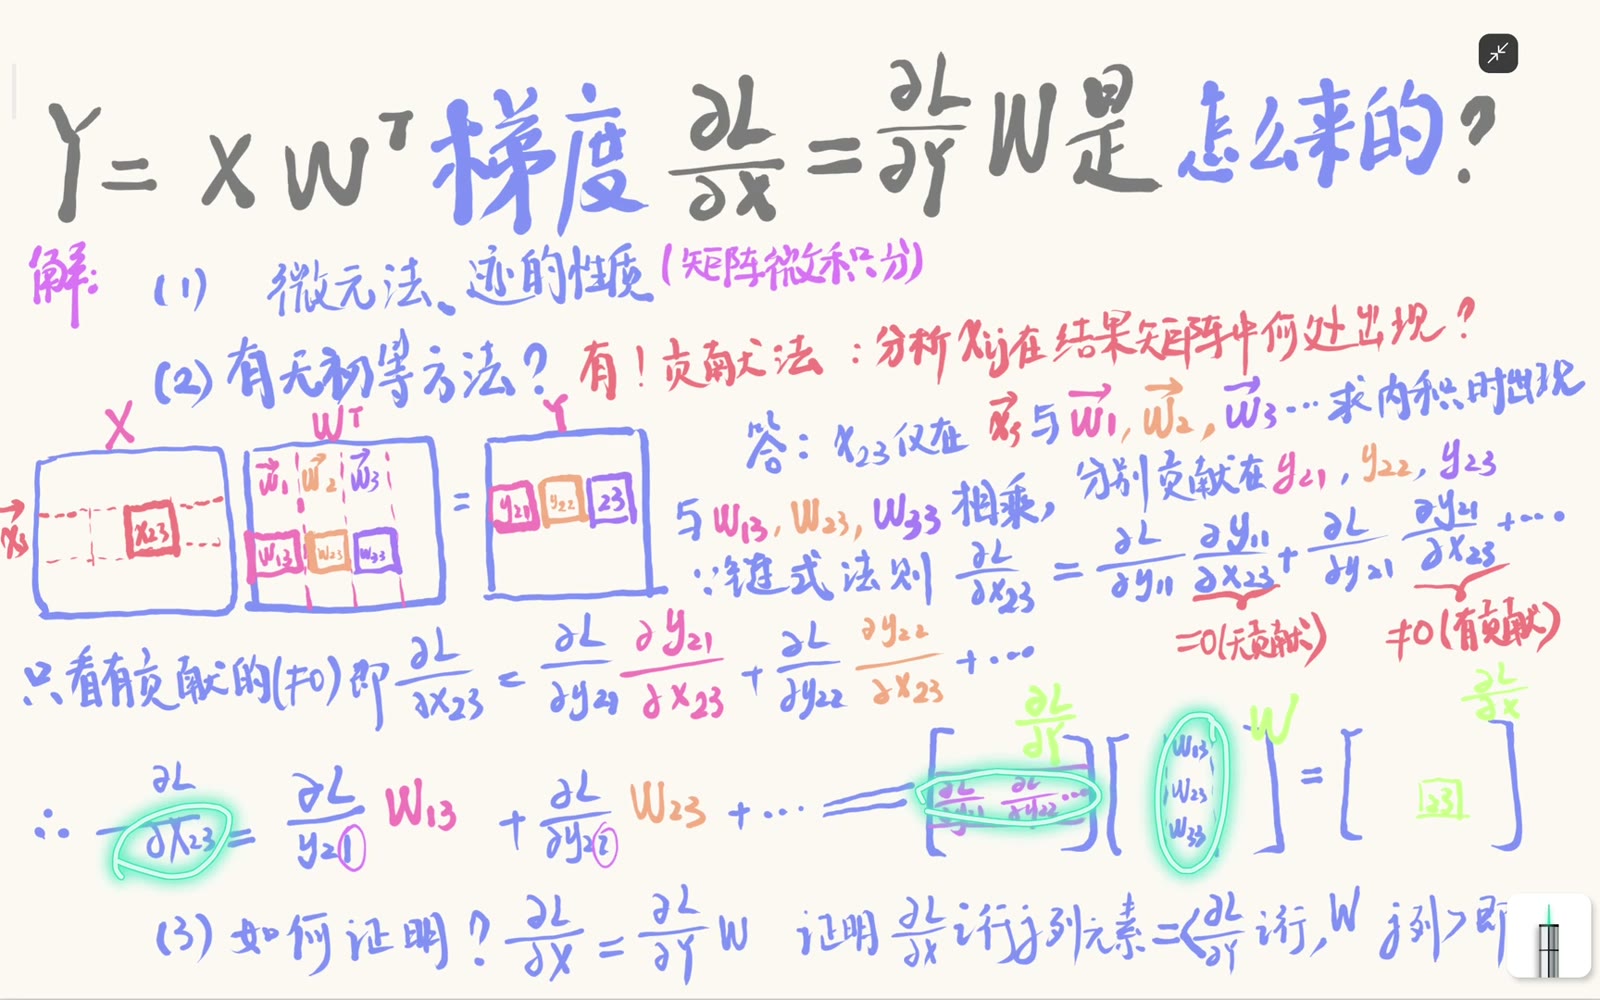 Y = XWᵀ 梯度 ∂L/∂X = ∂L/∂Y W是 怎么来的?
解: (1) 微元法、迹的性质 (矩阵微积分)
(2) 有无初等方法? 有! 贡献法: 分析Xij在结果矩阵中何处出现?
X Wᵀ Y
x⃗s x23
w⃗1 w⃗2 w⃗3
w13 w23 w33
=
y21 y22 23
答: x23仅在 x⃗s与w⃗1, w⃗2, w⃗3…求内积时出现
与w13, w23, w33相乘, 分别贡献在y21, y22, y23
∵链式法则 ∂L/∂x23 = ∂L/∂y11 ∂y11/∂x23 + ∂L/∂y21 ∂y21/∂x23 + …
=0(无贡献) ≠0(有贡献)
只看有贡献的(≠0)即 ∂L/∂x23 = ∂L/∂y21 ∂y21/∂x23 + ∂L/∂y22 ∂y22/∂x23 + …
∴ ∂L/∂x23 = ∂L/y21 w13 + ∂L/∂y22 w23 + … =
∂L/∂Y W ∂L/∂X
[∂L/∂y21 ∂L/∂y22 …] [w13 w23 w33] = [23]
(3) 如何证明? ∂L/∂X = ∂L/∂Y W 证明 ∂L/∂X i行j列元素=<∂L/∂Y i行, W j列>即